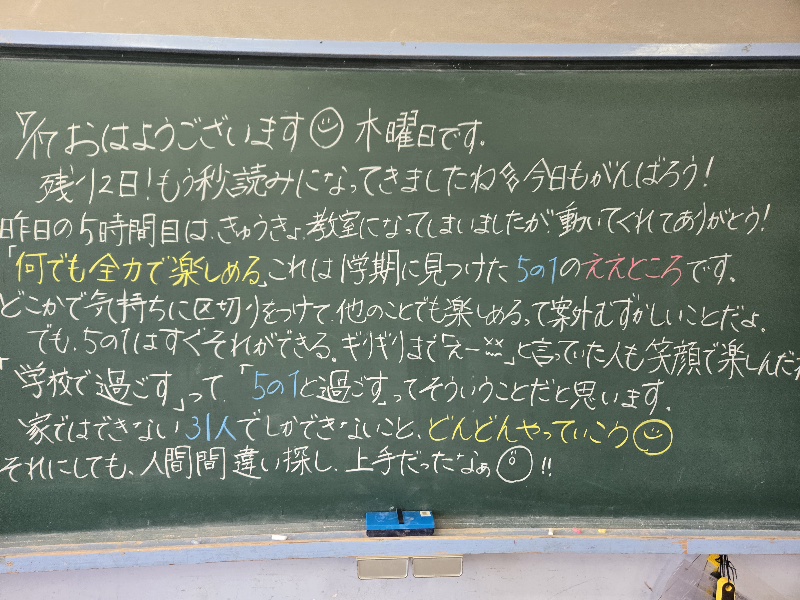 7/17 おはようございます 木曜日です。
残り2日！もう秒読みになってきましたね 今日もがんばろう！
昨日の5時間目は、きゅうきょ、教室になってしまいましたが、動いてくれてありがとう！
「何でも全力で楽しめる」これは1学期に見つけた5の1のええところです。
どこかで気持ちに区切りをつけて、他のことでも楽しめるって案外むずかしいことだよ。
でも、5の1はすぐそれができる。ギリギリまで「えー」と言っていた人も笑顔で楽しんだね
「学校で過ごす」って、「5の1と過ごす」ってそういうことだと思います。
家ではできない31人でしかできないこと、どんどんやっていこう
それにしても、人間間違い探し、上手だったなぁ !!